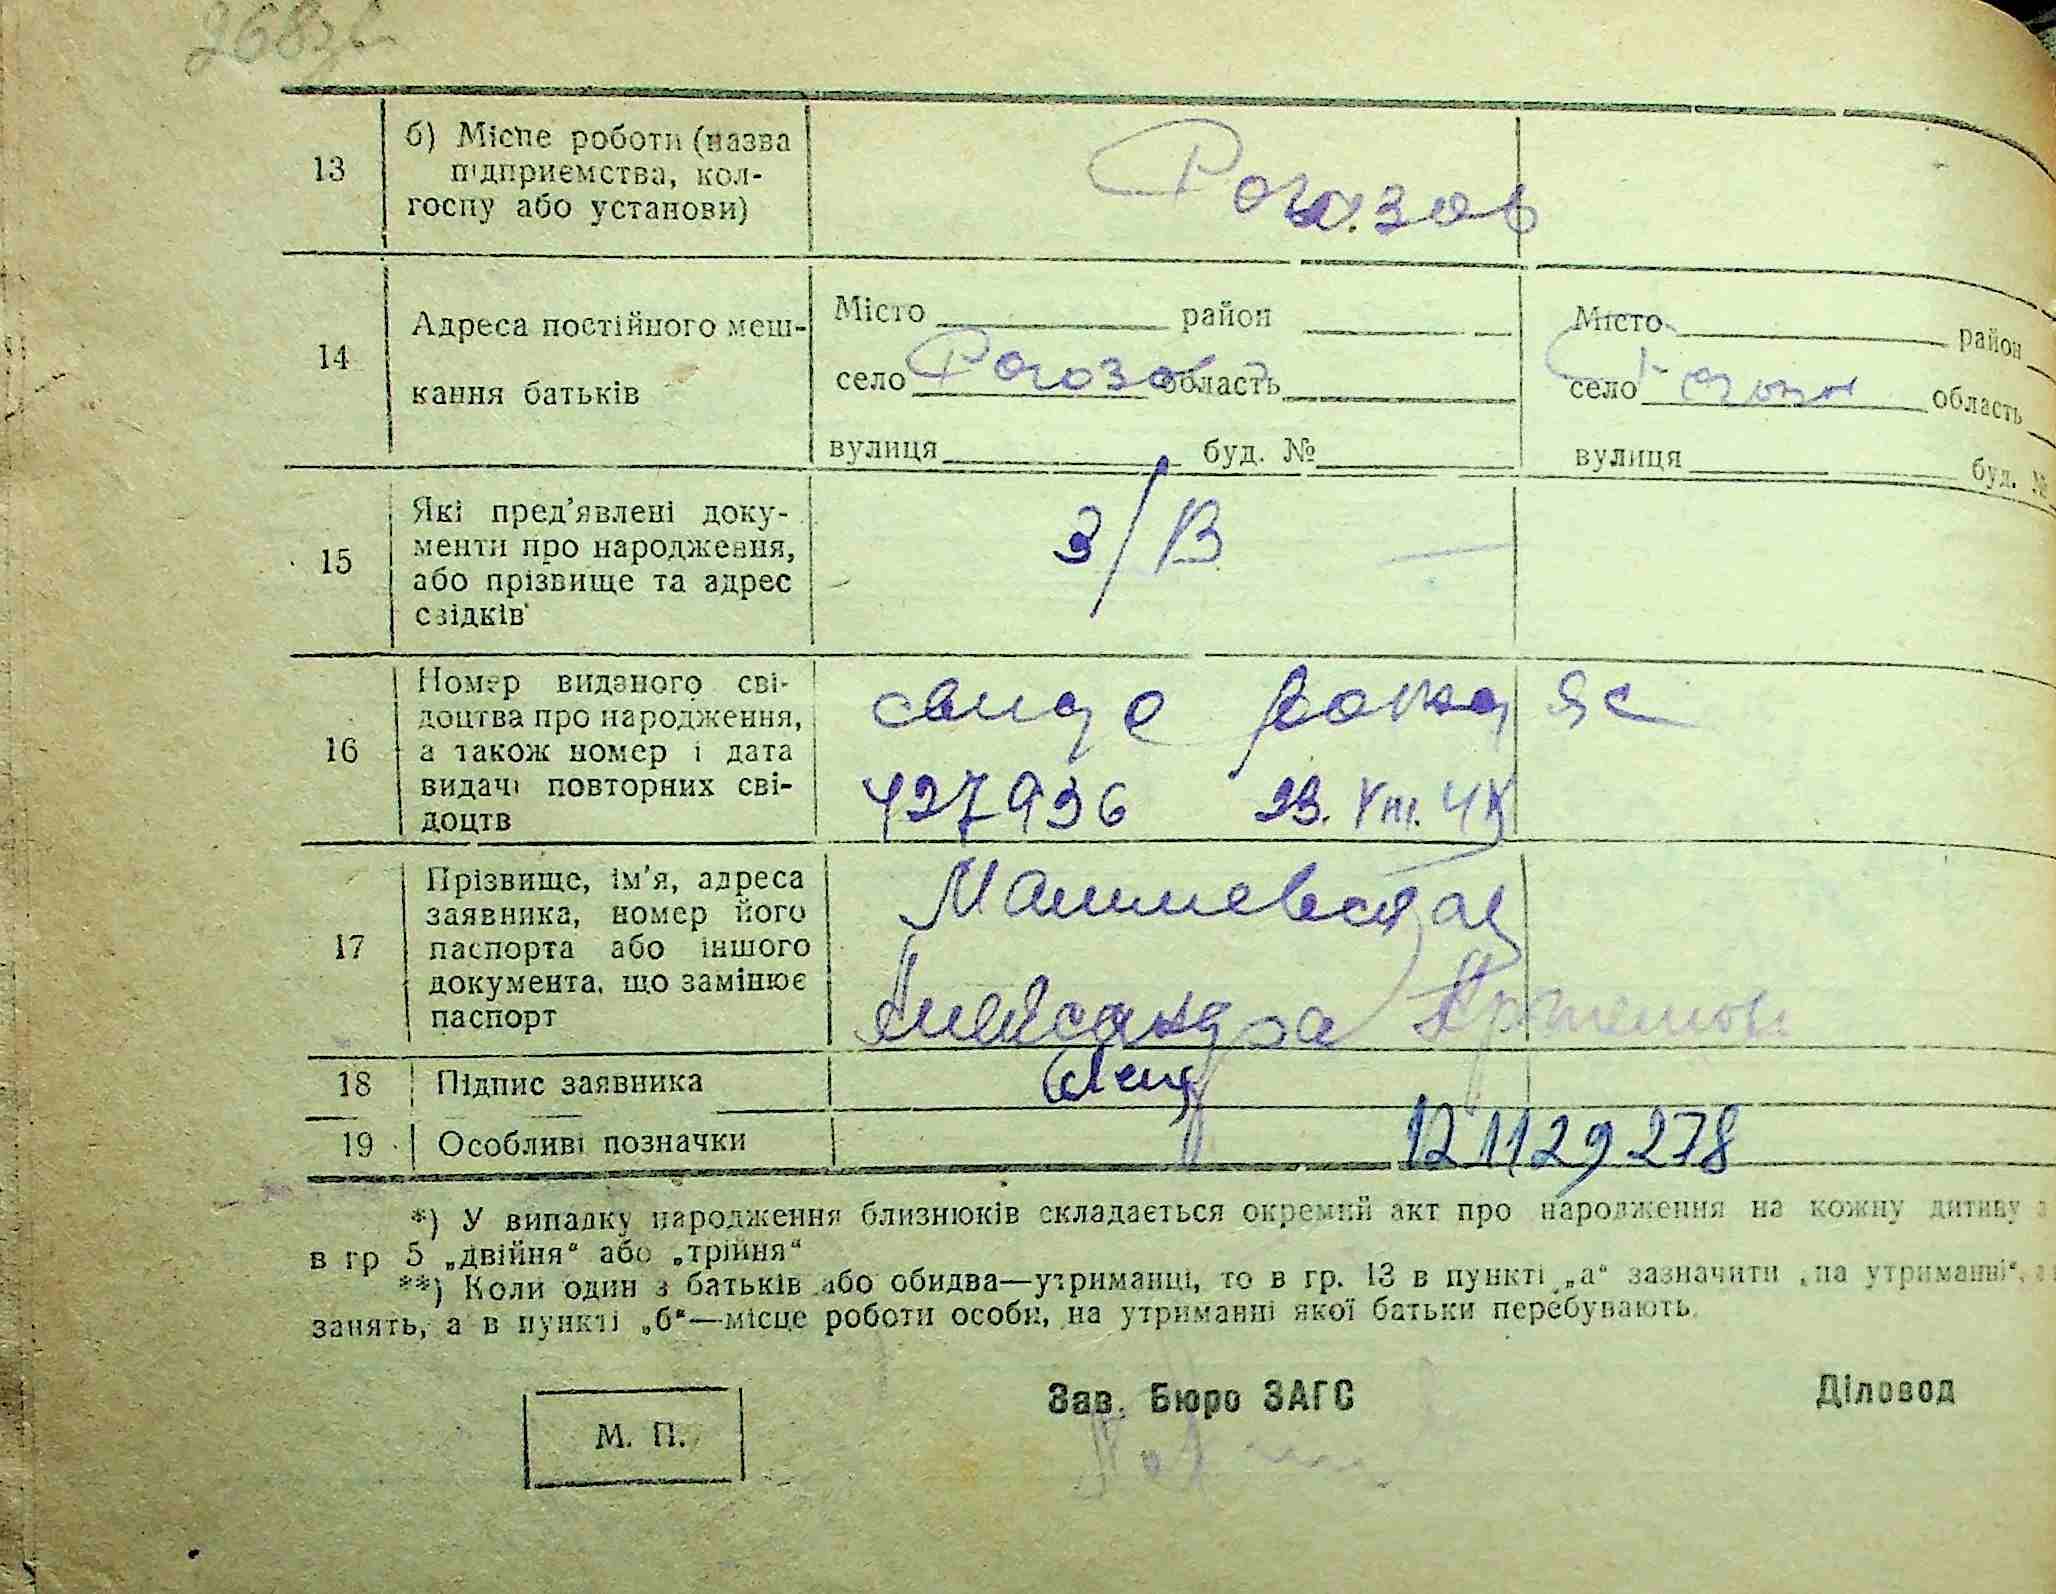 268зв
13
б) Місце роботи (назва
підприємства, кол-
госпу або установи)
Рогозов
14
Адреса постійного меш-
кання батьків
Місто район
село Рогозов область
вулиця буд. №
Місто район
село Рогозов область
вулиця буд. №
15
Які пред’явлені доку-
менти про народження,
або прізвище та адрес
свідків
З/В
16
Номер виданого сві-
доцтва про народження,
а також номер і дата
видачі повторних сві-
доцтв
ЯС
427936 23.VIII.
17
Прізвище, ім’я, адреса
заявника, номер його
паспорта або іншого
документа, що замінює
паспорт
Александра
18
Підпис заявника
19
Особливі позначки
121129278
*) У випадку народження близнюків складається окремий акт про народження на кожну дитину з
в гр 5 „двійня“ або „трійня“
**) Коли один з батьків або обидва—утриманці, то в гр. 13 в пункті „а“ зазначити „на утриманні“,
занять, а в пункті „б“—місце роботи особи, на утриманні якої батьки перебувають.
М. П.
Зав. Бюро ЗАГС
Діловод